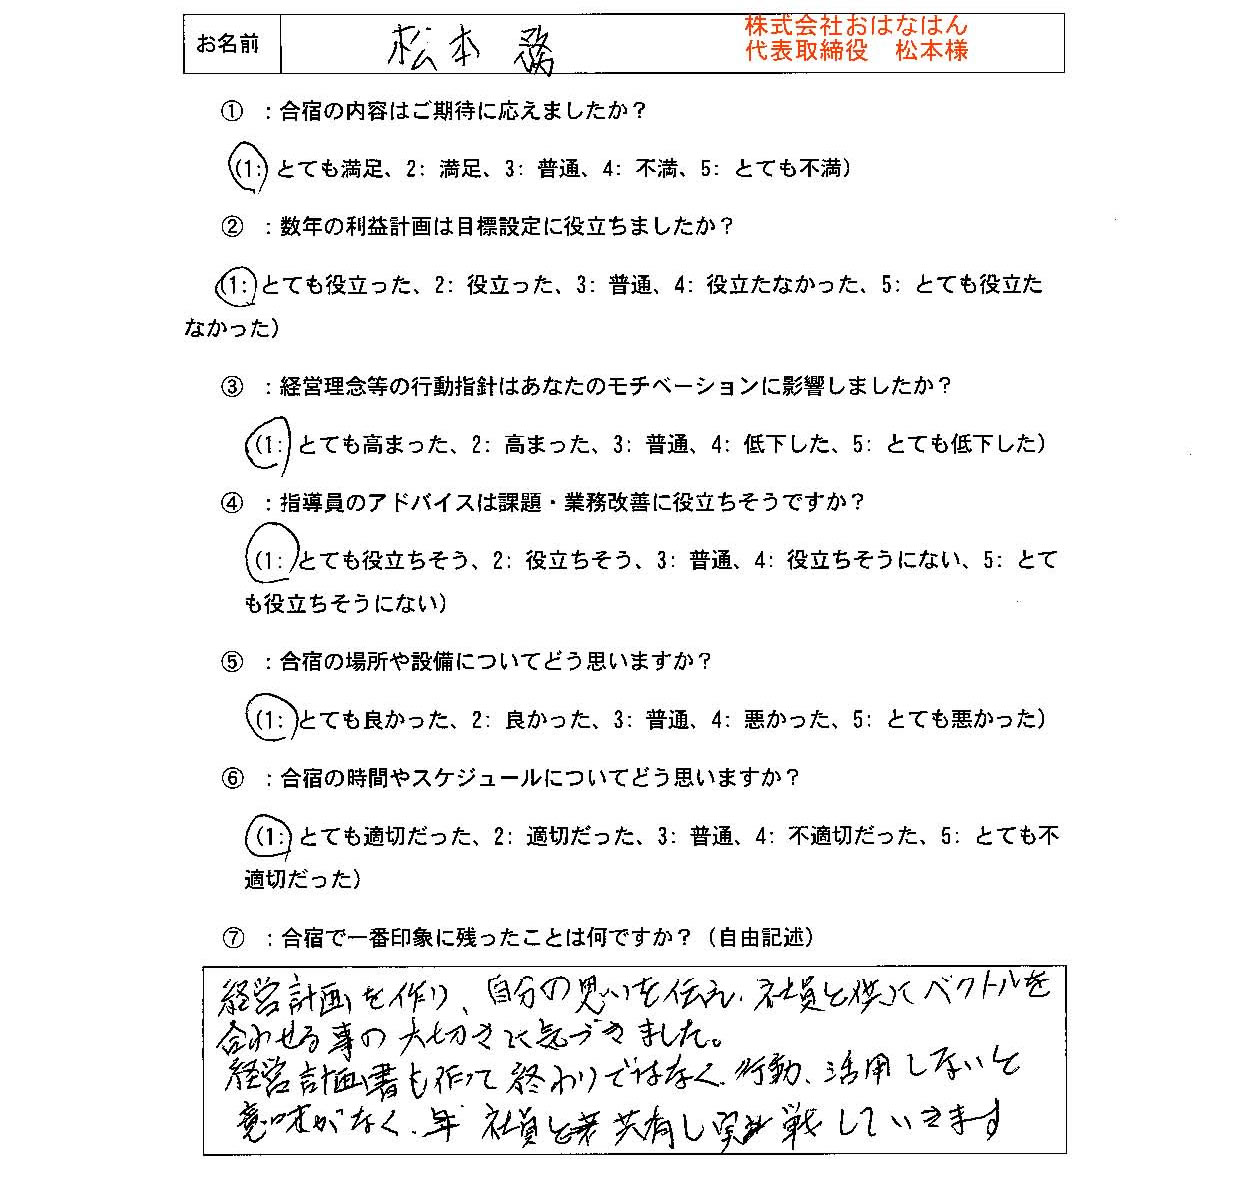 お名前 松本 務
株式会社おはなはん
代表取締役 松本様
① ：合宿の内容はご期待に応えましたか？
(1: とても満足、2: 満足、3: 普通、4: 不満、5: とても不満)
② ：数年の利益計画は目標設定に役立ちましたか？
(1: とても役立った、2: 役立った、3: 普通、4: 役立たなかった、5: とても役立た
なかった)
③ ：経営理念等の行動指針はあなたのモチベーションに影響しましたか？
(1: とても高まった、2: 高まった、3: 普通、4: 低下した、5: とても低下した)
④ ：指導員のアドバイスは課題・業務改善に役立ちそうですか？
(1: とても役立ちそう、2: 役立ちそう、3: 普通、4: 役立ちそうにない、5: とて
も役立ちそうにない)
⑤ ：合宿の場所や設備についてどう思いますか？
(1: とても良かった、2: 良かった、3: 普通、4: 悪かった、5: とても悪かった)
⑥ ：合宿の時間やスケジュールについてどう思いますか？
(1: とても適切だった、2: 適切だった、3: 普通、4: 不適切だった、5: とても不
適切だった)
⑦ ：合宿で一番印象に残ったことは何ですか？（自由記述）
経営計画を作り、自分の思いを伝え、社員と供にベクトルを
合わせる事の大切さに気づきました。
経営計画書も作って終わりではなく、行動、活用しないと
意味がなく、社員と共有し実戦していきます